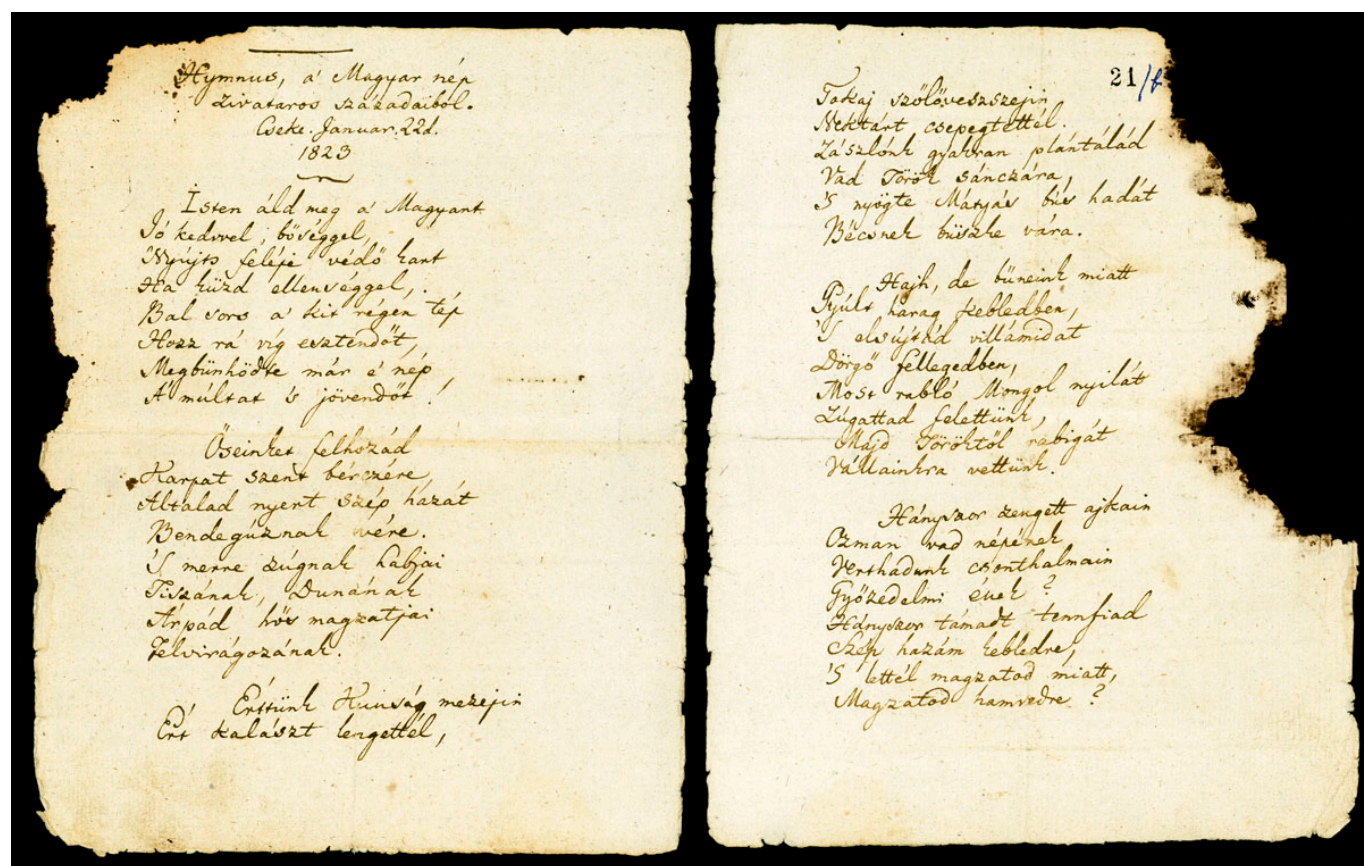 Hymnus, a' Magyar nép
zivataros századaiból.
Cseke. Januar. 22d.
1823
Isten áld meg a' Magyart
Jó kedvvel, bőséggel,
Nyújts feléje védő kart
Ha küzd ellenséggel,
Bal sors a' kit régen tép
Hozz rá víg esztendőt,
Megbűnhődte már e' nép
A' múltat 's jövendőt!
Őseinket felhozád
Kárpat szent bérczére
Általad nyert szép hazát
Bendegúznak vére.
'S merre zúgnak habjai
Tiszának, Dunának
Árpád hős magzatjai
Felvirágozának.
Értünk Kunság mezejin
Ért kalászt lengettél,
21/b
Tokaj szőlőveszszejin
Nektárt csepegtettél.
Zászlónk gyakran plántálád
Vad Török sánczára,
'S nyögte Mátyás bús hadát
Bécsnek büszke vára.
Hajh, de bűneink miatt
Gyúlt harag kebledben,
'S elsújtád villámidat
Dörgő fellegedben,
Most rabló Mongol nyilát
Zúgattad felettünk,
Majd Töröktől rabigát
Vállainkra vettünk.
Hányszor zengett ajkain
Ozman vad népének
Vert hadunk csonthalmain
Győzedelmi ének?
Hányszor támadt tennfiad
Szép hazám kebledre,
'S lettél magzatod miatt,
Magzatod hamvedre?